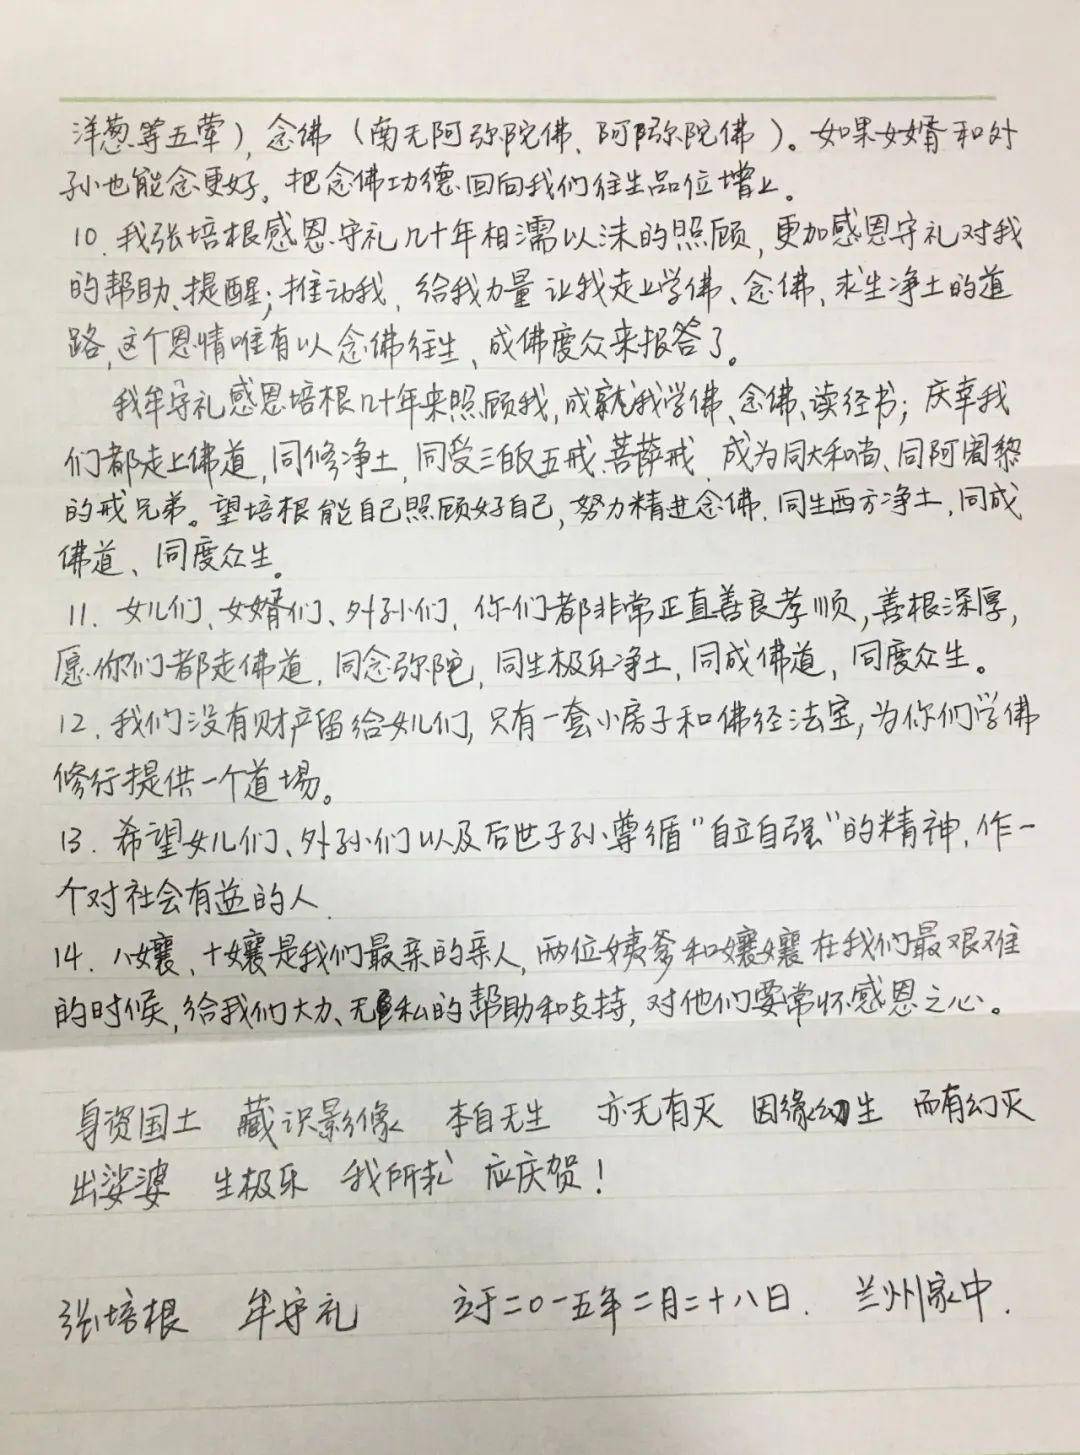 洋葱等五荤），念佛（南无阿弥陀佛、阿弥陀佛）。如果女婿和外
孙也能念更好，把念佛功德回向我们往生品位增上。
10、我张培根感恩守礼几十年相濡以沫的照顾，更加感恩守礼对我
的帮助、提醒；推动我，给我力量让我走上学佛、念佛、求生净土的道
路，这个恩情唯有以念佛往生、成佛度众来报答了。
我牟守礼感恩培根几十年来照顾我，成就我学佛、念佛、读经书；庆幸我
们都走上佛道，同修净土，同受三皈五戒、菩萨戒，成为同大和尚、同阿阇黎
的戒兄弟。望培根能自己照顾好自己，努力精进念佛，同生西方净土，同成
佛道、同度众生。
11、女儿们、女婿们、外孙们，你们都非常正直善良孝顺，善根深厚，
愿你们都走佛道，同念弥陀，同生极乐净土，同成佛道，同度众生。
12、我们没有财产留给女儿们，只有一套小房子和佛经法宝，为你们学佛
修行提供一个道场。
13、希望女儿们、外孙们以及后世子孙尊循“自立自强”的精神，作一
个对社会有益的人.
14、八孃、十孃是我们最亲的亲人，两位姨爹和孃孃在我们最艰难
的时候，给我们大力、无私的帮助和支持，对他们要常怀感恩之心。
身资国土 藏识影像 本自无生 亦无有灭 因缘幻生 而有幻灭
出娑婆 生极乐 我所求 应庆贺！
张培根 牟守礼 立于二〇一五年二月二十八日. 兰州家中.